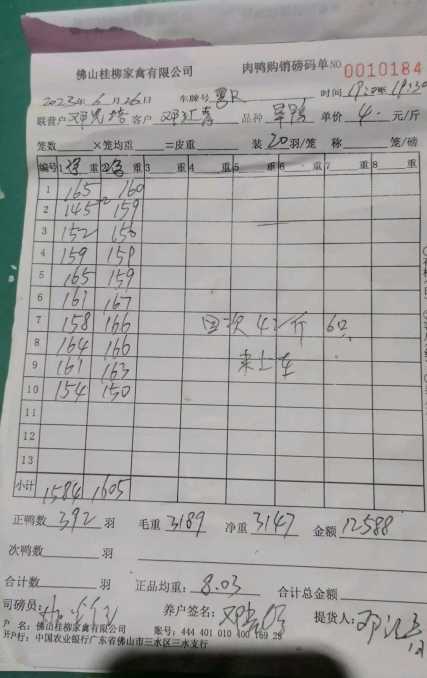 佛山桂柳家禽有限公司 肉鸭购销磅码单 NO 0010184
2023年6月26日 车牌号 粤R 时间 19:20至19:30
联营户 客户 品种 单价 4. 元/斤
笼数 ×笼均重 =皮重 装20羽/笼 称 笼/磅
编号 1 重 2 重 3 重 4 重 5 重 6 重 7 重 8 重
1 165 160
2 145 159
3 152 150
4 159 159
5 165 159
6 161 167
7 158 166 回次42斤 6只
8 164 166 未上车
9 161 163
10 154 150
11
12
13
小计 1584 1605
正鸭数 392 羽 毛重 3189 净重 3147 金额 12588
次鸭数 羽
合计数 羽 正品均重: 8.03 合计总金额
司磅员: 养户签名: 提货人:
户 名: 佛山桂柳家禽有限公司 账号: 444 401 010 400 169 28
开户行: 中国农业银行广东省佛山市三水区三水支行